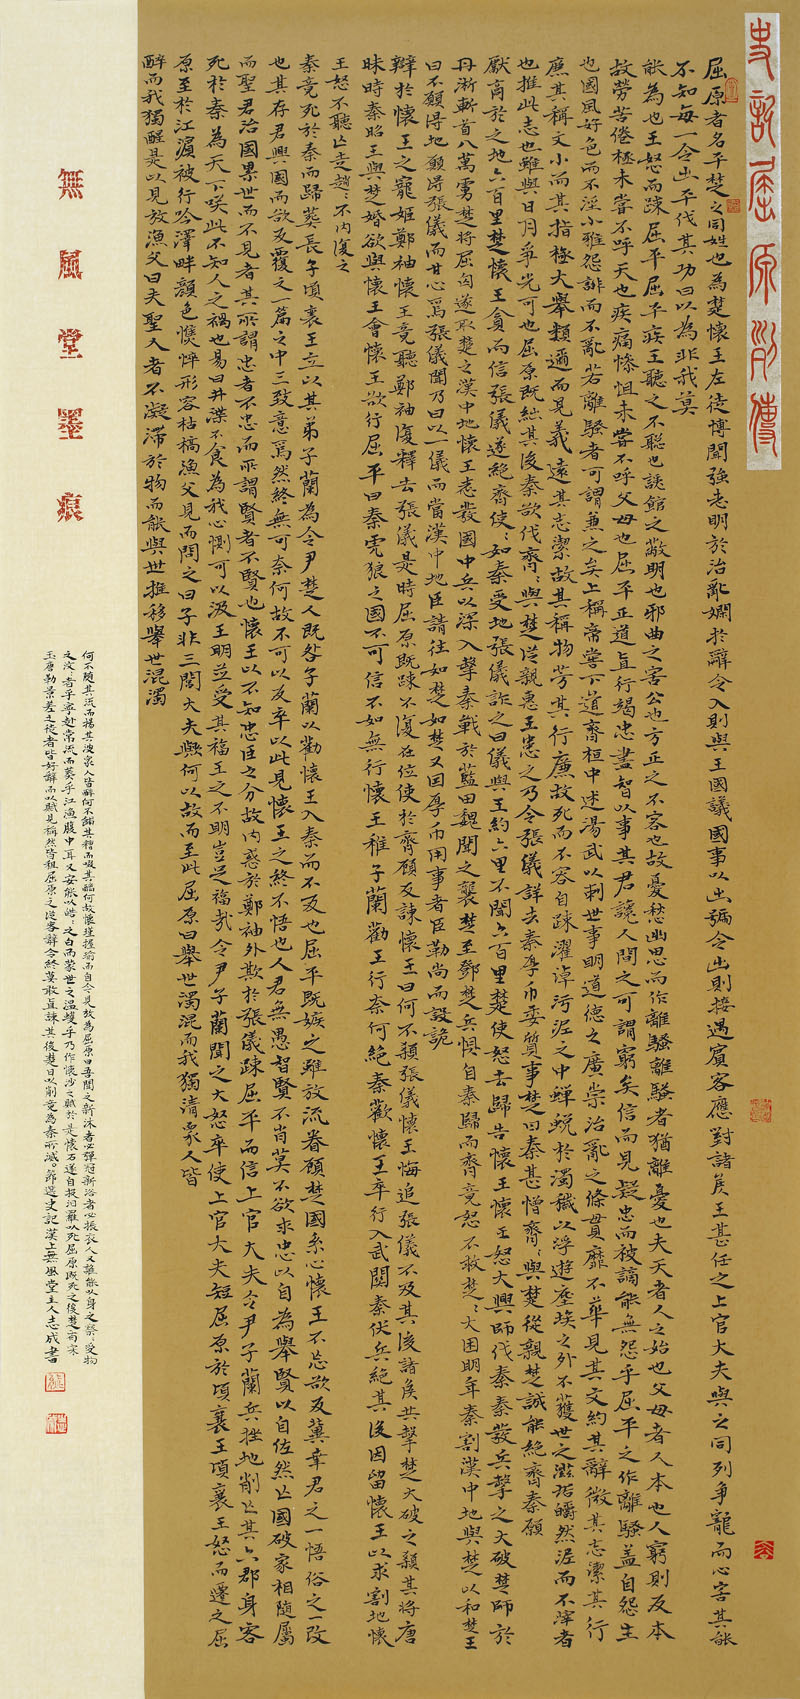 史記屈原列傳
屈原者名平楚之同姓也為楚懷王左徒博聞強志明於治亂嫺於辭令入則與王國議國事以出號令出則接遇賓客應對諸侯王甚任之上官大夫與之同列爭寵而心害其能
不知每一令出平伐其功曰以為非我莫
能為也王怒而疎屈平屈平疾王聽之不聰也讒諂之蔽明也邪曲之害公也方正之不容也故憂愁幽思而作離騷離騷者猶離憂也夫天者人之始也父母者人本也人窮則反本
故勞苦倦極未嘗不呼天也疾痛慘怛未嘗不呼父母也屈平正道直行竭忠盡智以事其君讒人間之可謂窮矣信而見疑忠而被謗能無怨乎屈平之作離騷蓋自怨生
也國風好色而不淫小雅怨誹而不亂若離騷者可謂兼之矣上稱帝嚳下道齊桓中述湯武以刺世事明道德之廣崇治亂之條貫靡不畢見其文約其辭微其志潔其行
廉其稱文小而其指極大舉類邇而見義遠其志潔故其稱物芳其行廉故死而不容自疎濯淖汚泥之中蟬蛻於濁穢以浮遊塵埃之外不獲世之滋垢皭然泥而不滓者
也推此志也雖與日月爭光可也屈原既絀其後秦欲伐齊:與楚從親惠王患之乃令張儀詳去秦厚币委質事楚曰秦甚憎齊:與楚從親楚誠能絕齊秦願
獻商於之地六百里楚懷王貪而信張儀遂絕齊使:如秦受地張儀詐之曰儀與王約六里不聞六百里楚使怒去歸告懷王懷王怒大興師伐秦秦發兵擊之大破楚師於
丹淅斬首八萬虜楚將屈匄遂取楚之漢中地懷王悉發國中兵以深入擊秦戰於藍田魏聞之襲楚至鄧楚兵懼自秦歸而齊竟怒不救楚:大困明年秦割漢中地與楚以和楚王
曰不願得地願得張儀而甘心焉張儀聞乃曰以一儀而當漢中地臣請往如楚如楚又因厚币用事者臣靳尚而設詭
辯於懷王之寵姬鄭袖懷王竟聽鄭袖復釋去張儀是時屈原既疎不復在位使於齊顧反諫懷王曰何不殺張儀懷王悔追張儀不及其後諸侯共擊楚大破之殺其將唐
昧時秦昭王與楚婚欲與懷王會懷王欲行屈平曰秦虎狼之國不可信不如無行懷王稚子蘭勸王行奈何絕秦歡懷王卒行入武關秦伏兵絕其後因留懷王以求割地懷
王怒不聽亡走趙:不內復之
秦竟死於秦而歸葬長子頃襄王立以其弟子蘭為令尹楚人既咎子蘭以勸懷王入秦而不反也屈平既嫉之雖放流眷顧楚國系心懷王不忘欲反冀幸君之一悟俗之一改
也其存君興國而欲反覆之一篇之中三致意焉然終無可奈何故不可以反卒以此見懷王之終不悟也人君無愚智賢不肖莫不欲求忠以自為舉賢以自佐然亡國破家相隨屬
而聖君治國累世而不見者其所謂忠者不忠而所謂賢者不賢也懷王以不知忠臣之分故內惑於鄭袖外欺於張儀疎屈平而信上官大夫令尹子蘭兵挫地削亡其六郡身客
死於秦為天下咲此不知人之禍也易曰井渫不食為我心惻可以汲王明並受其福王之不明豈足福哉令尹子蘭聞之大怒卒使上官大夫短屈原於頃襄王頃襄王怒而遷之屈
原至於江濱被行吟澤畔顏色憔悴形容枯槁漁父見而問之曰子非三閭大夫歟何以故而至此屈原曰舉世濁混而我獨清衆人皆
醉而我獨醒是以見放漁父曰夫聖人者不凝滯於物而能與世推移舉世混濁
何不隨其流而揚其波衆人皆醉何不餔其糟而啜其醨何故懷瑾握瑜而自令見放為屈原曰吾聞之新沐者必彈冠新浴者必振衣人又誰能以身之察:受物
之汶:者乎寧赴常流而葬乎江漁腹中耳又安能以皓:之白而蒙世之溫蠖乎乃作懷沙之賦於是懷石遂自投汨羅以死屈原既死之後楚有宋
玉唐勒景差之徒者皆好辭而以賦見稱然皆祖屈原之從容辭令終莫敢直諫其後楚日以削竟為秦所滅。節選史記漢上無風堂主人志成書
無風堂墨痕